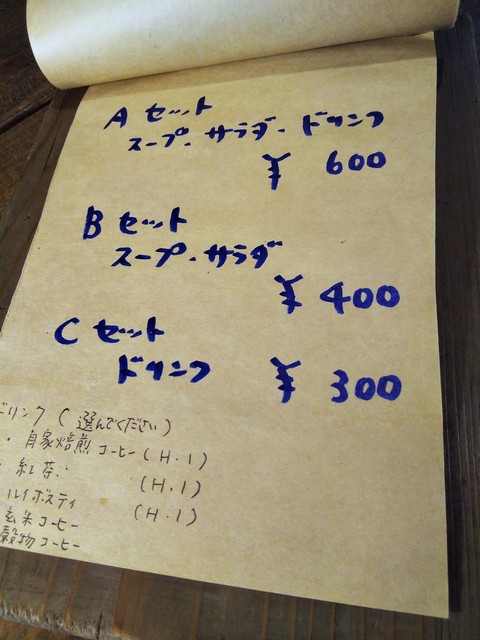 A セット
スープ・サラダ・ドリンク
¥ 600
B セット
スープ・サラダ
¥ 400
C セット
ドリンク ¥ 300
ドリンク (選んでください)
・自家焙煎コーヒー (H・I)
・紅茶・ (H・I)
ルイボスティ (H・I)
玄米コーヒー
穀物コーヒー